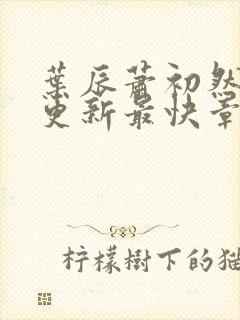 葉辰蕭初然
更新最快章
柠檬樹下的猫